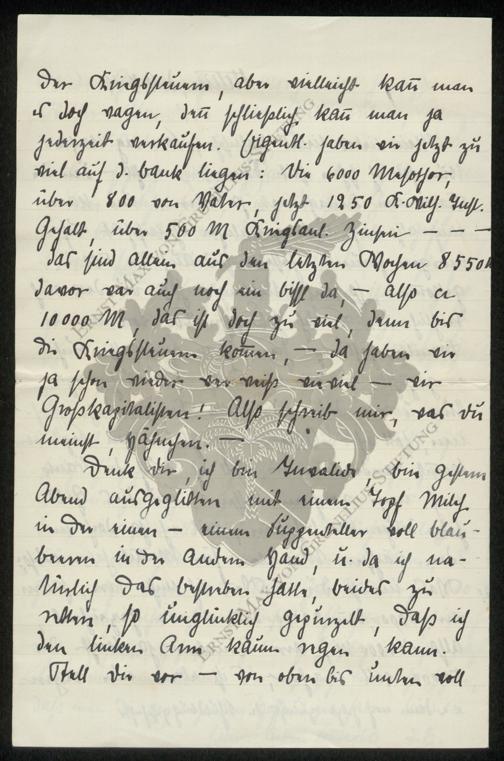 der Kriegssteuern, aber vielleicht kañ man
es doch wagen, deñ schließlich kañ man ja
jederzeit verkaufen. Eigentl. haben wir jetzt zu
viel auf d. bank liegen: Die 6000 Mesothor,
über 800 von Vater, jetzt 1250 K. Wilh. Inst.
Gehalt, über 500 M Kriegsanl. Zinsen – – –
das sind allein aus den letzten Wochen 8550 M
davor war auch noch ein bißl da, – also ca
10000 M, das ist doch zu viel, denn bis
die Kriegssteuern komen, – da haben wir
ja schon wieder wer weiß wieviel – wir
Großkapitalisten! Also schreib mir, was du
meinst, Hähnchen. –
Denk dir, ich bin Invalide, bin gestern
Abend ausgeglitten mit einem Topf Milch
in der einen – einem Suppenteller voll blau-
beeren in der Andern Hand, u. da ich na-
türlich das bestreben hatte, beides zu
retten, so unglücklich gepurzelt, daß ich
den linken Arm kaum regen kann.
Stell dir vor – von oben bis unten voll
ERNST MAX VON GRUNELIUS-STIFTUNG
ERNST MAX VON GRUNELIUS-STIFTUNG